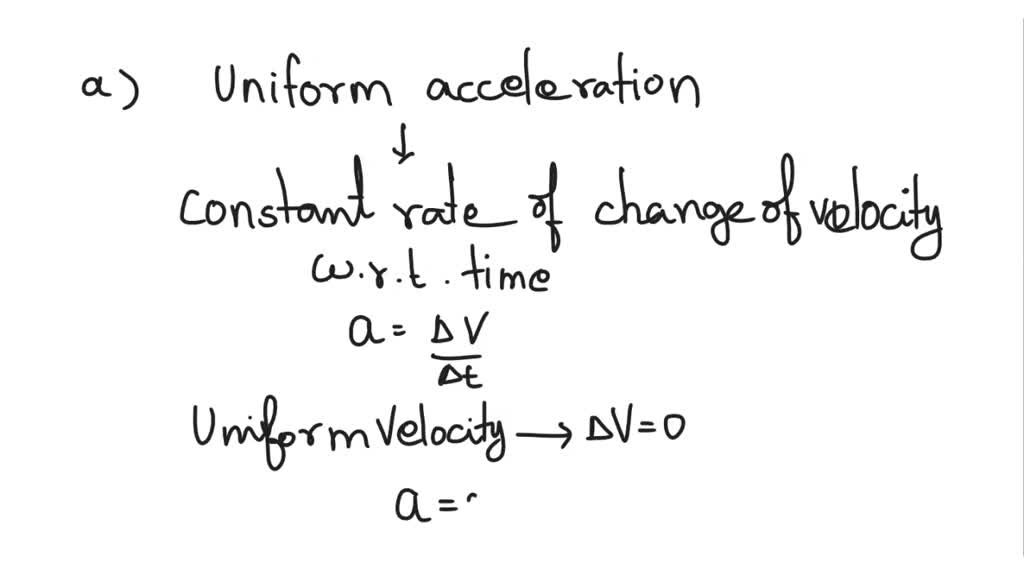 a) Uniform acceleration
↓
constant rate of change of velocity
w.r.t. time
a = ΔV
Δt
Uniform Velocity → ΔV = 0
a =